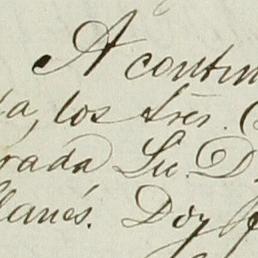 A contin
ta, los Sres. C
rada Lic. D.
llanés. Doy f